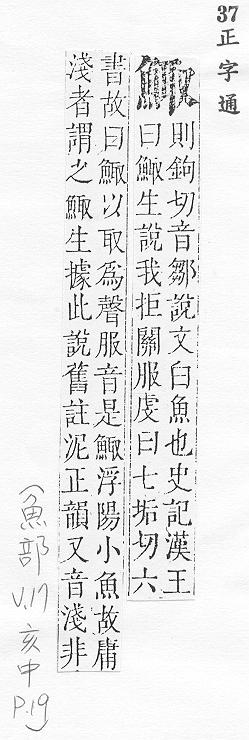 37正字通
鯫
則鉤切音鄒說文白魚也史記漢王
曰鯫生說我拒關服虔曰七垢切六
書故曰鯫以取為聲服音是鯫浮陽小魚故庸
淺者謂之鯫生據此說舊註泥正韻又音淺非
(魚部
V.17 亥中
P.19